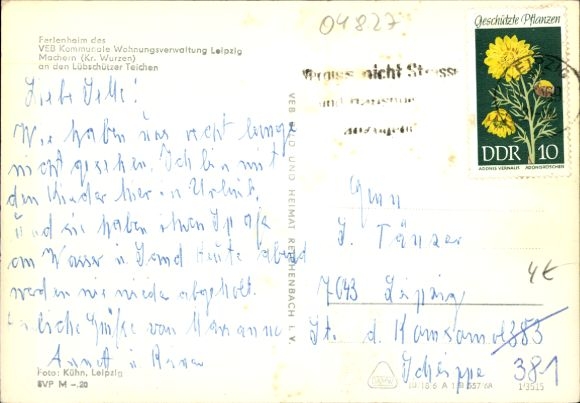 04827
Ferienheim des
VEB Kommunale Wohnungsverwaltung Leipzig
Machern (Kr. Wurzen)
an den Lübschützer Teichen
Liebe
Wir haben uns recht lange
nicht gesehen. Ich bin mit
den Kinder hier in Urlaub.
Und sie haben ihren Spaß
am Wasser u. Sand Heute abend
werden wir wieder abgeholt.
Grüße von Marianne
Annett u.
Foto: Kühn, Leipzig
BVP M -.20
VEB BILD UND HEIMAT REICHENBACH I. V.
nicht Strasse
und
Geschützte Pflanzen
DDR 10
ADONIS VERNALIS ADONISRÖSCHEN
J. Tänzer
7043 Leipzig
Str. d. Komsomol 383
381
4€
1/3515